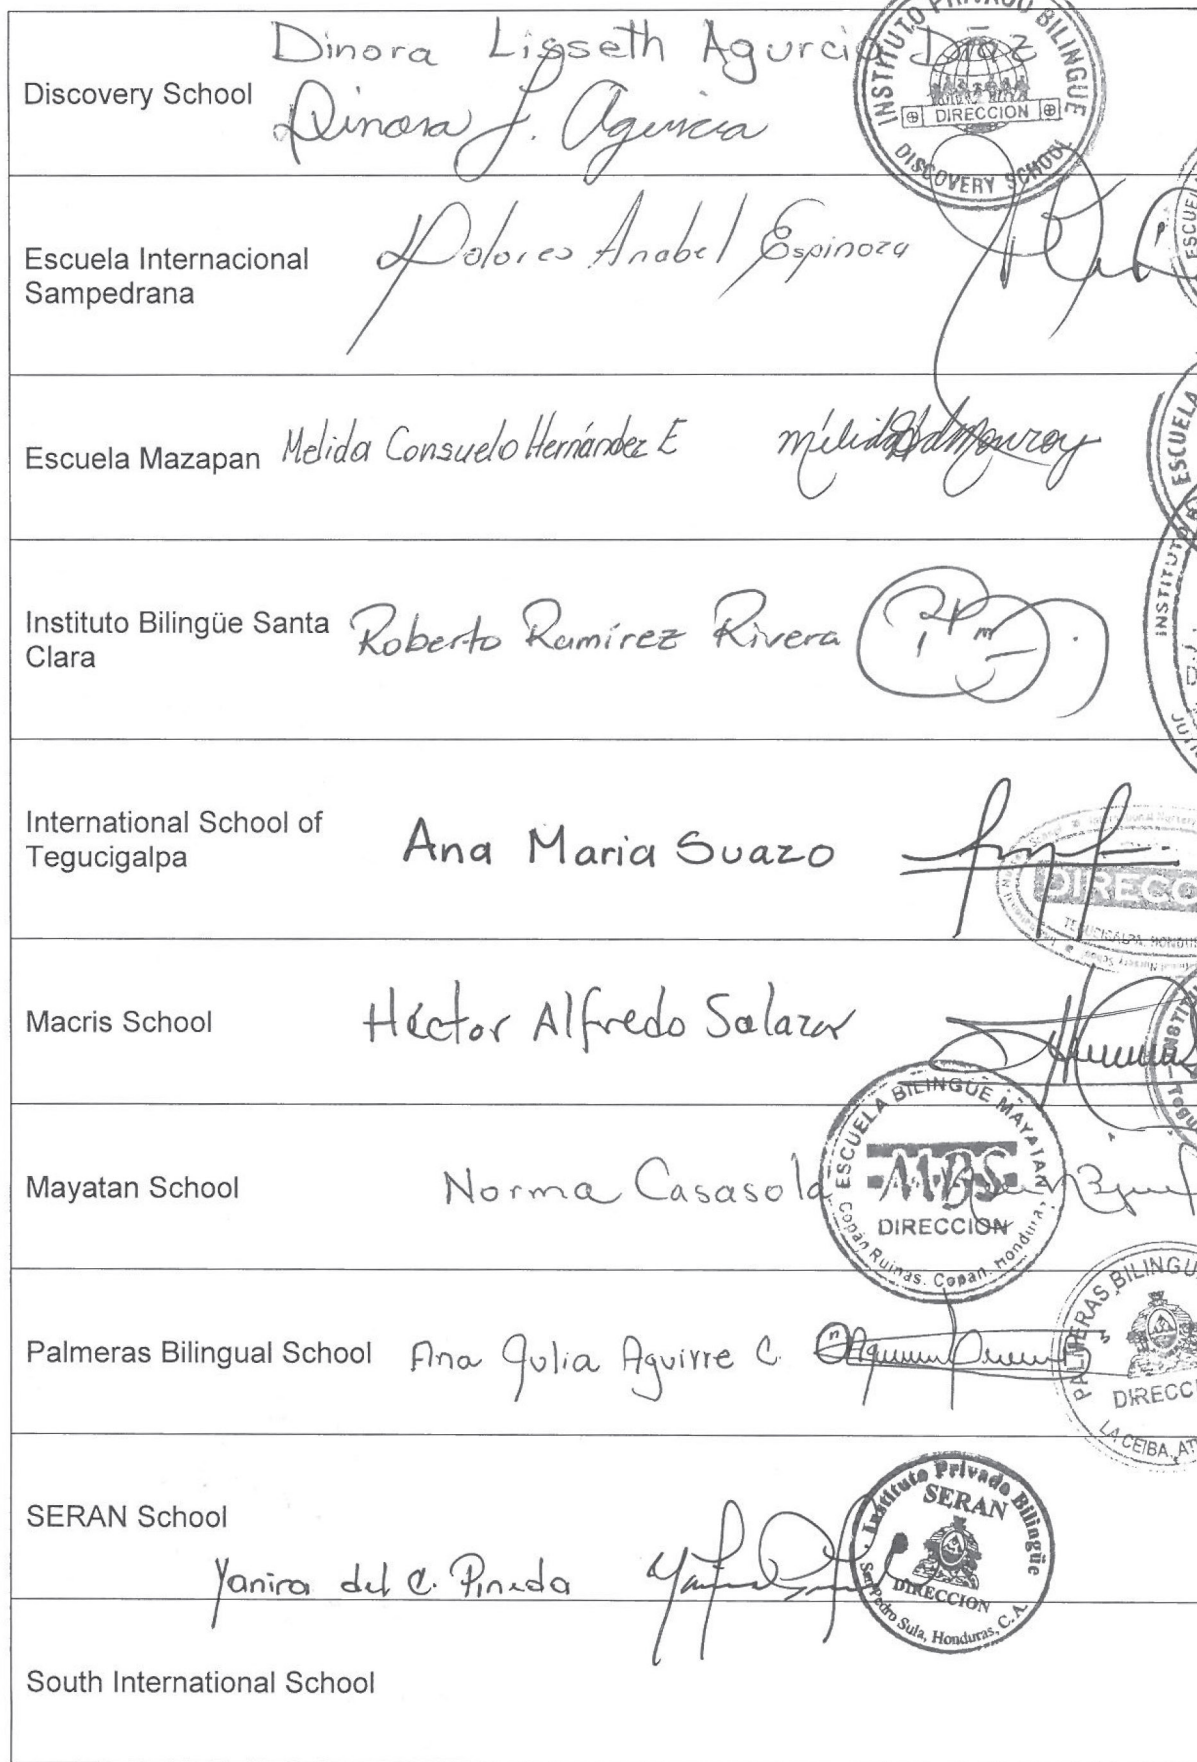 Dinora Lisseth Agurcia Díaz
Discovery School
Dinora L. Agurcia
INSTITUTO PRIVADO BILINGUE
DIRECCION
DISCOVERY SCHOOL
Escuela Internacional
Sampedrana
Dolores Anabel Espinoza
ESCUEL
Escuela Mazapan
Melida Consuelo Hernández E
ESCUELA
Instituto Bilingüe Santa
Clara
Roberto Ramírez Rivera
INSTITUTO
International School of
Tegucigalpa
Ana Maria Suazo
DIRECC
TEGUCIGALPA, HONDU
Macris School
Héctor Alfredo Salazar
Mayatan School
Norma Casasola
ESCUELA BILINGÜE MAYATAN
MBS
DIRECCION
Copán Ruinas, Copan, Honduras
Palmeras Bilingual School
Ana Julia Aguirre C.
PALMERAS BILINGU
DIRECCI
LA CEIBA, AT
SERAN School
Yanira del C. Pineda
Instituto Privado Bilingüe
SERAN
DIRECCION
San Pedro Sula, Honduras, C.A.
South International School